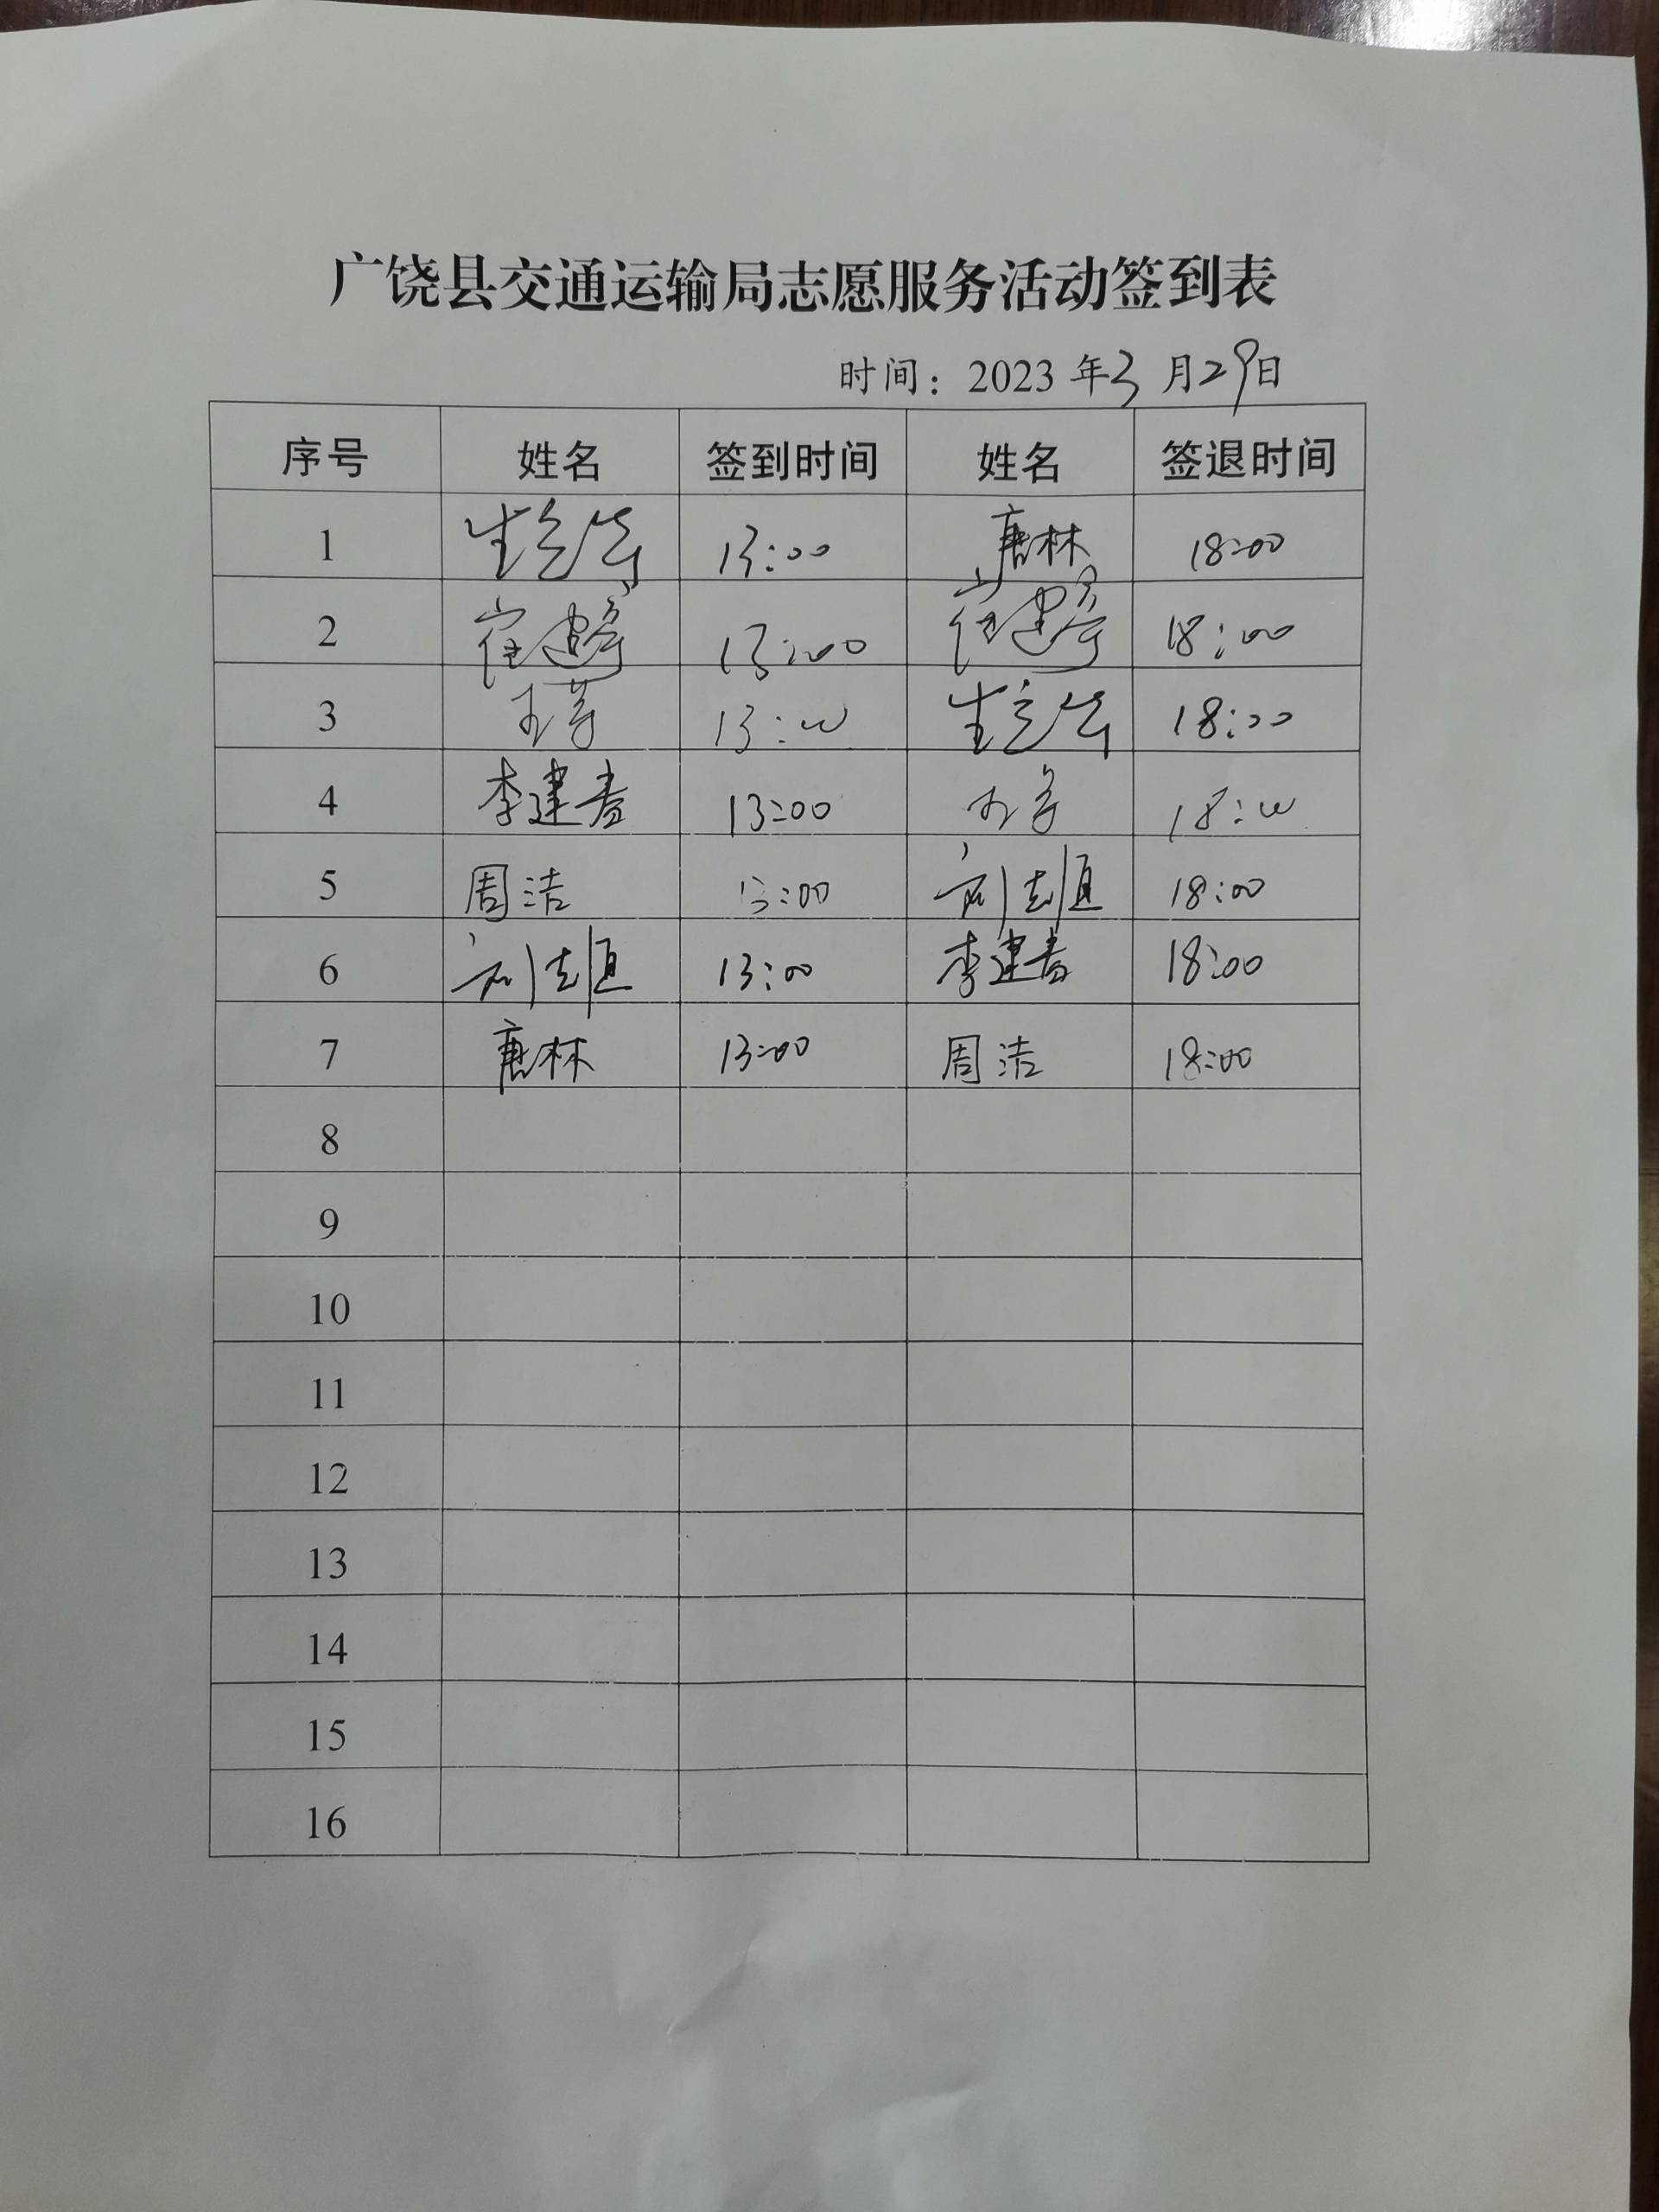 广饶县交通运输局志愿服务活动签到表
时间：2023 年3 月29日
序号 姓名 签到时间 姓名 签退时间
1 13:00 唐林 18:00
2 13:00 18:00
3 13:00 18:00
4 李建春 13:00 18:00
5 周洁 13:00 18:00
6 13:00 李建春 18:00
7 唐林 13:00 周洁 18:00
8
9
10
11
12
13
14
15
16